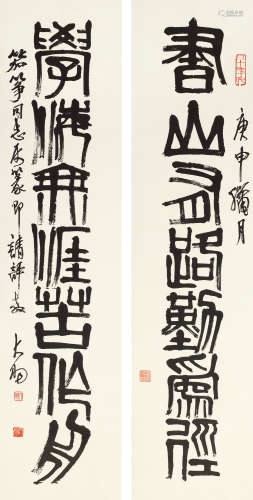 書山有路勤為徑
庚申月
學海無涯苦作舟
箏同志屬篆即請教
大羽